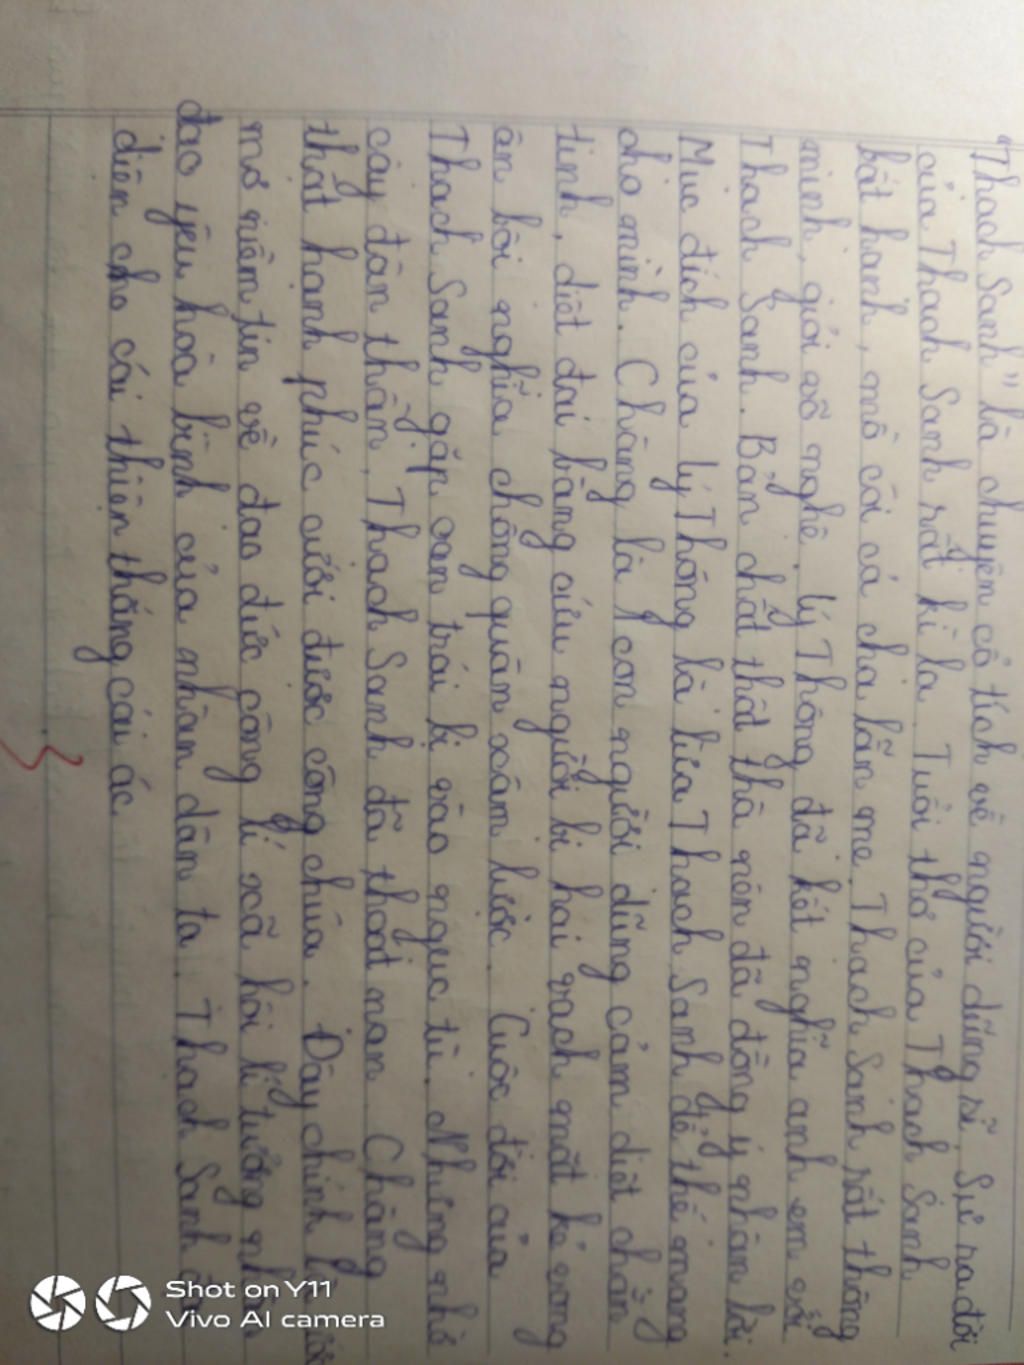 "Thạch Sanh" là chuyện cổ tích về người dũng sĩ. Sự ra đời
của Thạch Sanh rất kì lạ. Tuổi thơ của Thạch Sanh
bất hạnh, mồ côi cả cha lẫn mẹ. Thạch Sanh rất thông
minh, giỏi võ nghệ. Lý Thông đã kết nghĩa anh em với
Thạch Sanh. Bản chất thật thà nên đã đồng ý nhận lời.
Mục đích của Lý Thông là lừa Thạch Sanh để thế mạng
cho mình. Chàng là 1 con người dũng cảm diệt chằn
tinh, diệt đại bàng cứu người bị hại vạch mặt kẻ vong
ân bội nghĩa chống quân xâm lược. Cuộc đời của
Thạch Sanh gặp oan trái bị vào ngục tù. Nhưng nhờ
cây đàn thần, Thạch Sanh đã thoát nạn. Chàng
thật hạnh phúc cưới được công chúa. Đây chính là ước
mơ niềm tin về đạo đức công lí xã hội lí tưởng nhân
đạo yêu hoà bình của nhân dân ta. Thạch Sanh đại
diện cho cái thiện thắng cái ác
Shot on Y11
Vivo AI camera